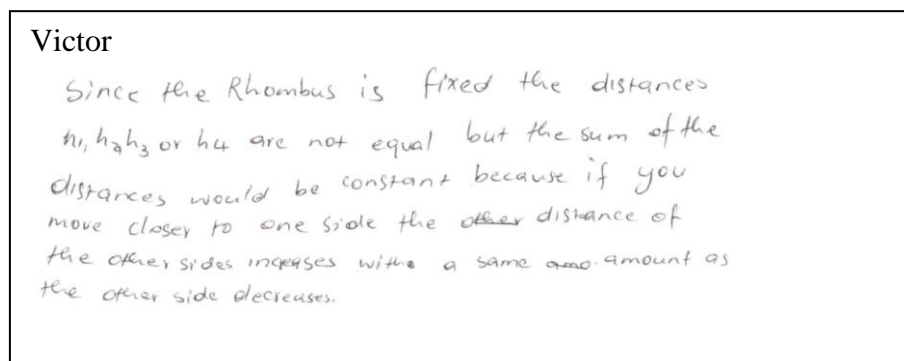 Victor
Since the Rhombus is fixed the distances
h1, h2 h3 or h4 are not equal but the sum of the
distances would be constant because if you
move closer to one side the other distance of
the other sides increases with a same amo. amount as
the other side decreases.